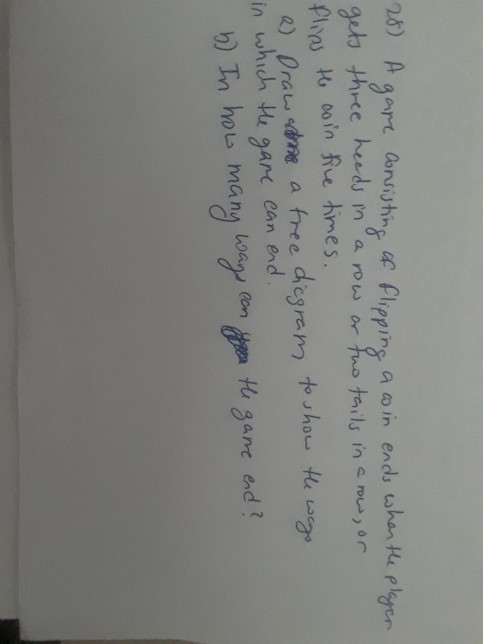 28) A game consisting of flipping a coin ends when the player
gets three heads in a row or two tails in a row, or
flips the coin five times.
a) Draw a tree diagram to show the ways
in which the game can end.
b) In how many ways can the game end?